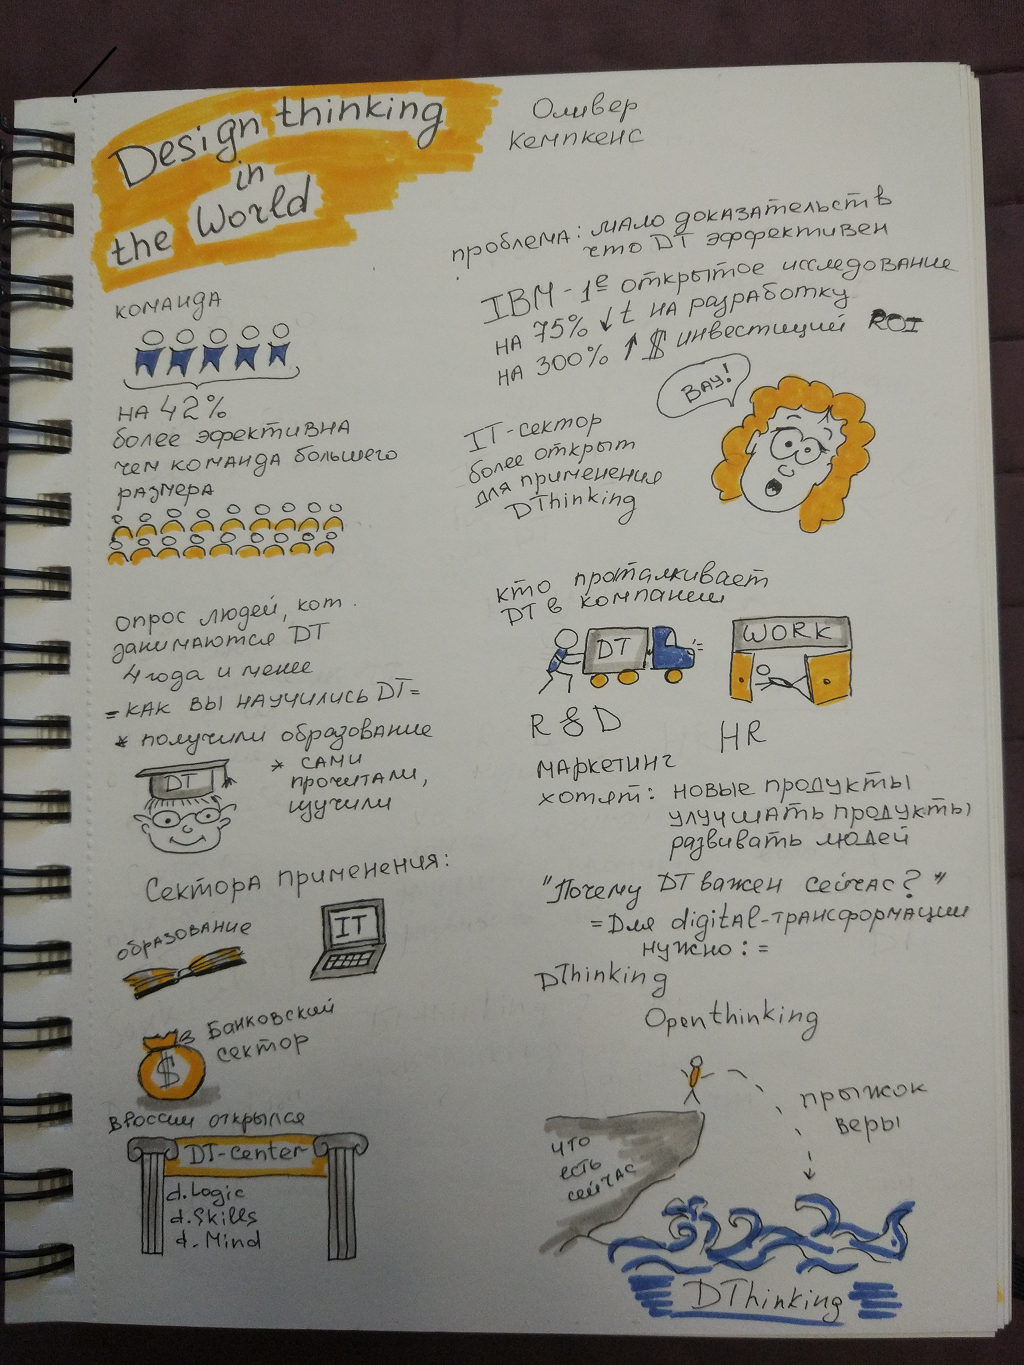 Design thinking
in
the World
Оливер
Кемпкенс
команда
на 42%
более эфективна
чем команда большего
размера
опрос людей, кот.
занимаются DT
4 года и менее
= как вы научились DT=
* получили образование
DT
* сами
прочитали,
изучили
Сектора применения:
образование
IT
$
Банковский
сектор
в России открылся
DT-center
d.Logic
d.Skills
d.Mind
проблема: мало доказательств
что DT эффективен
IBM - 1е открытое исследование
на 75% ↓ t на разработку
на 300% ↑ $ инвестиций ROI
Вау!
IT-сектор
более открыт
для применения
DThinking
кто проталкивает
DT в компании
DT
WORK
R & D
HR
маркетинг
хотят: новые продукты
улучшать продукты
развивать людей
"Почему DT важен сейчас?"
= Для digital-трансформации
нужно: =
DThinking
Openthinking
прыжок
веры
что
есть
сейчас
DThinking